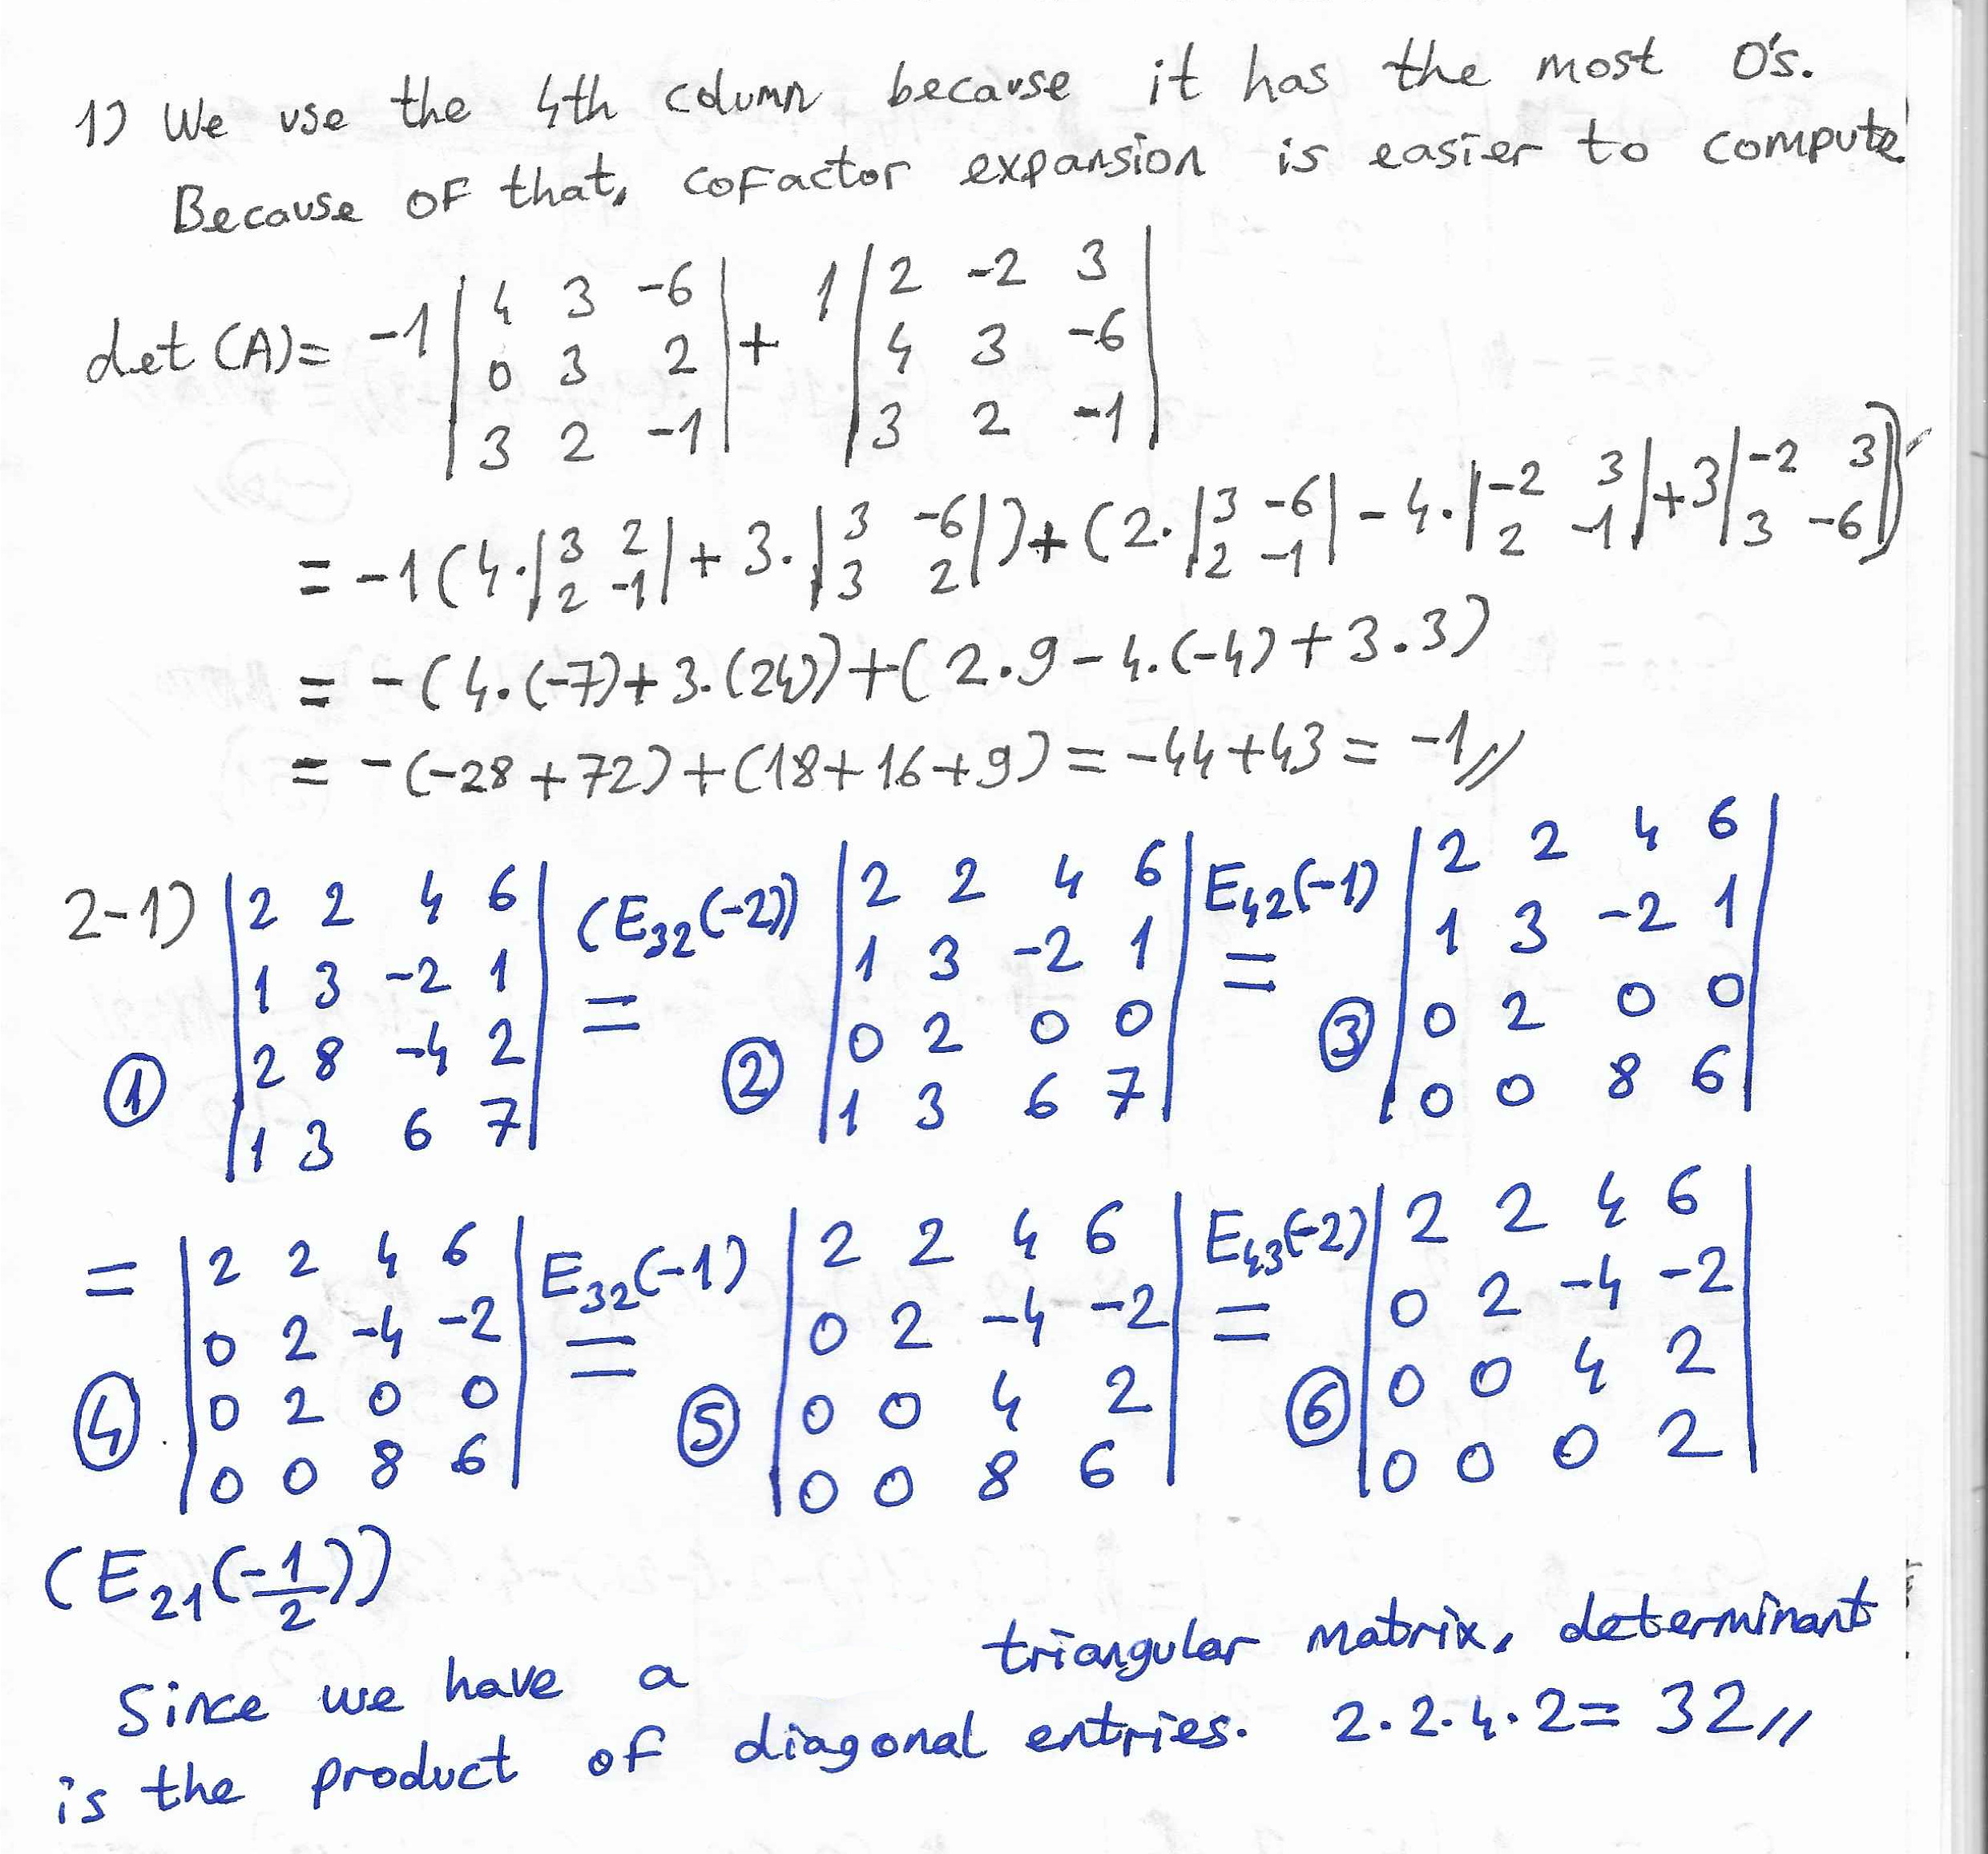 1) We use the 4th column because it has the most 0's.
Because of that, cofactor expansion is easier to compute.
det(A)= -1 |4 3 -6; 0 3 2; 3 2 -1| + 1 |2 -2 3; 4 3 -6; 3 2 -1|
= -1(4.|3 2; 2 -1| + 3.|3 -6; 3 2|) + (2.|3 -6; 2 -1| - 4.|-2 3; 2 -1| + 3|-2 3; 3 -6|)
= -(4.(-7)+3.(24))+(2.9-4.(-4)+3.3)
= -(-28+72)+(18+16+9)= -44+43= -1//
2-1) ① |2 2 4 6; 1 3 -2 1; 2 8 -4 2; 1 3 6 7| (E32(-2)) = ② |2 2 4 6; 1 3 -2 1; 0 2 0 0; 1 3 6 7| E42(-1) = ③ |2 2 4 6; 1 3 -2 1; 0 2 0 0; 0 0 8 6|
= ④ |2 2 4 6; 0 2 -4 -2; 0 2 0 0; 0 0 8 6| E32(-1) = ⑤ |2 2 4 6; 0 2 -4 -2; 0 0 4 2; 0 0 8 6| E43(-2) = ⑥ |2 2 4 6; 0 2 -4 -2; 0 0 4 2; 0 0 0 2|
(E21(-1/2))
Since we have a triangular matrix, determinant
is the product of diagonal entries. 2.2.4.2= 32//